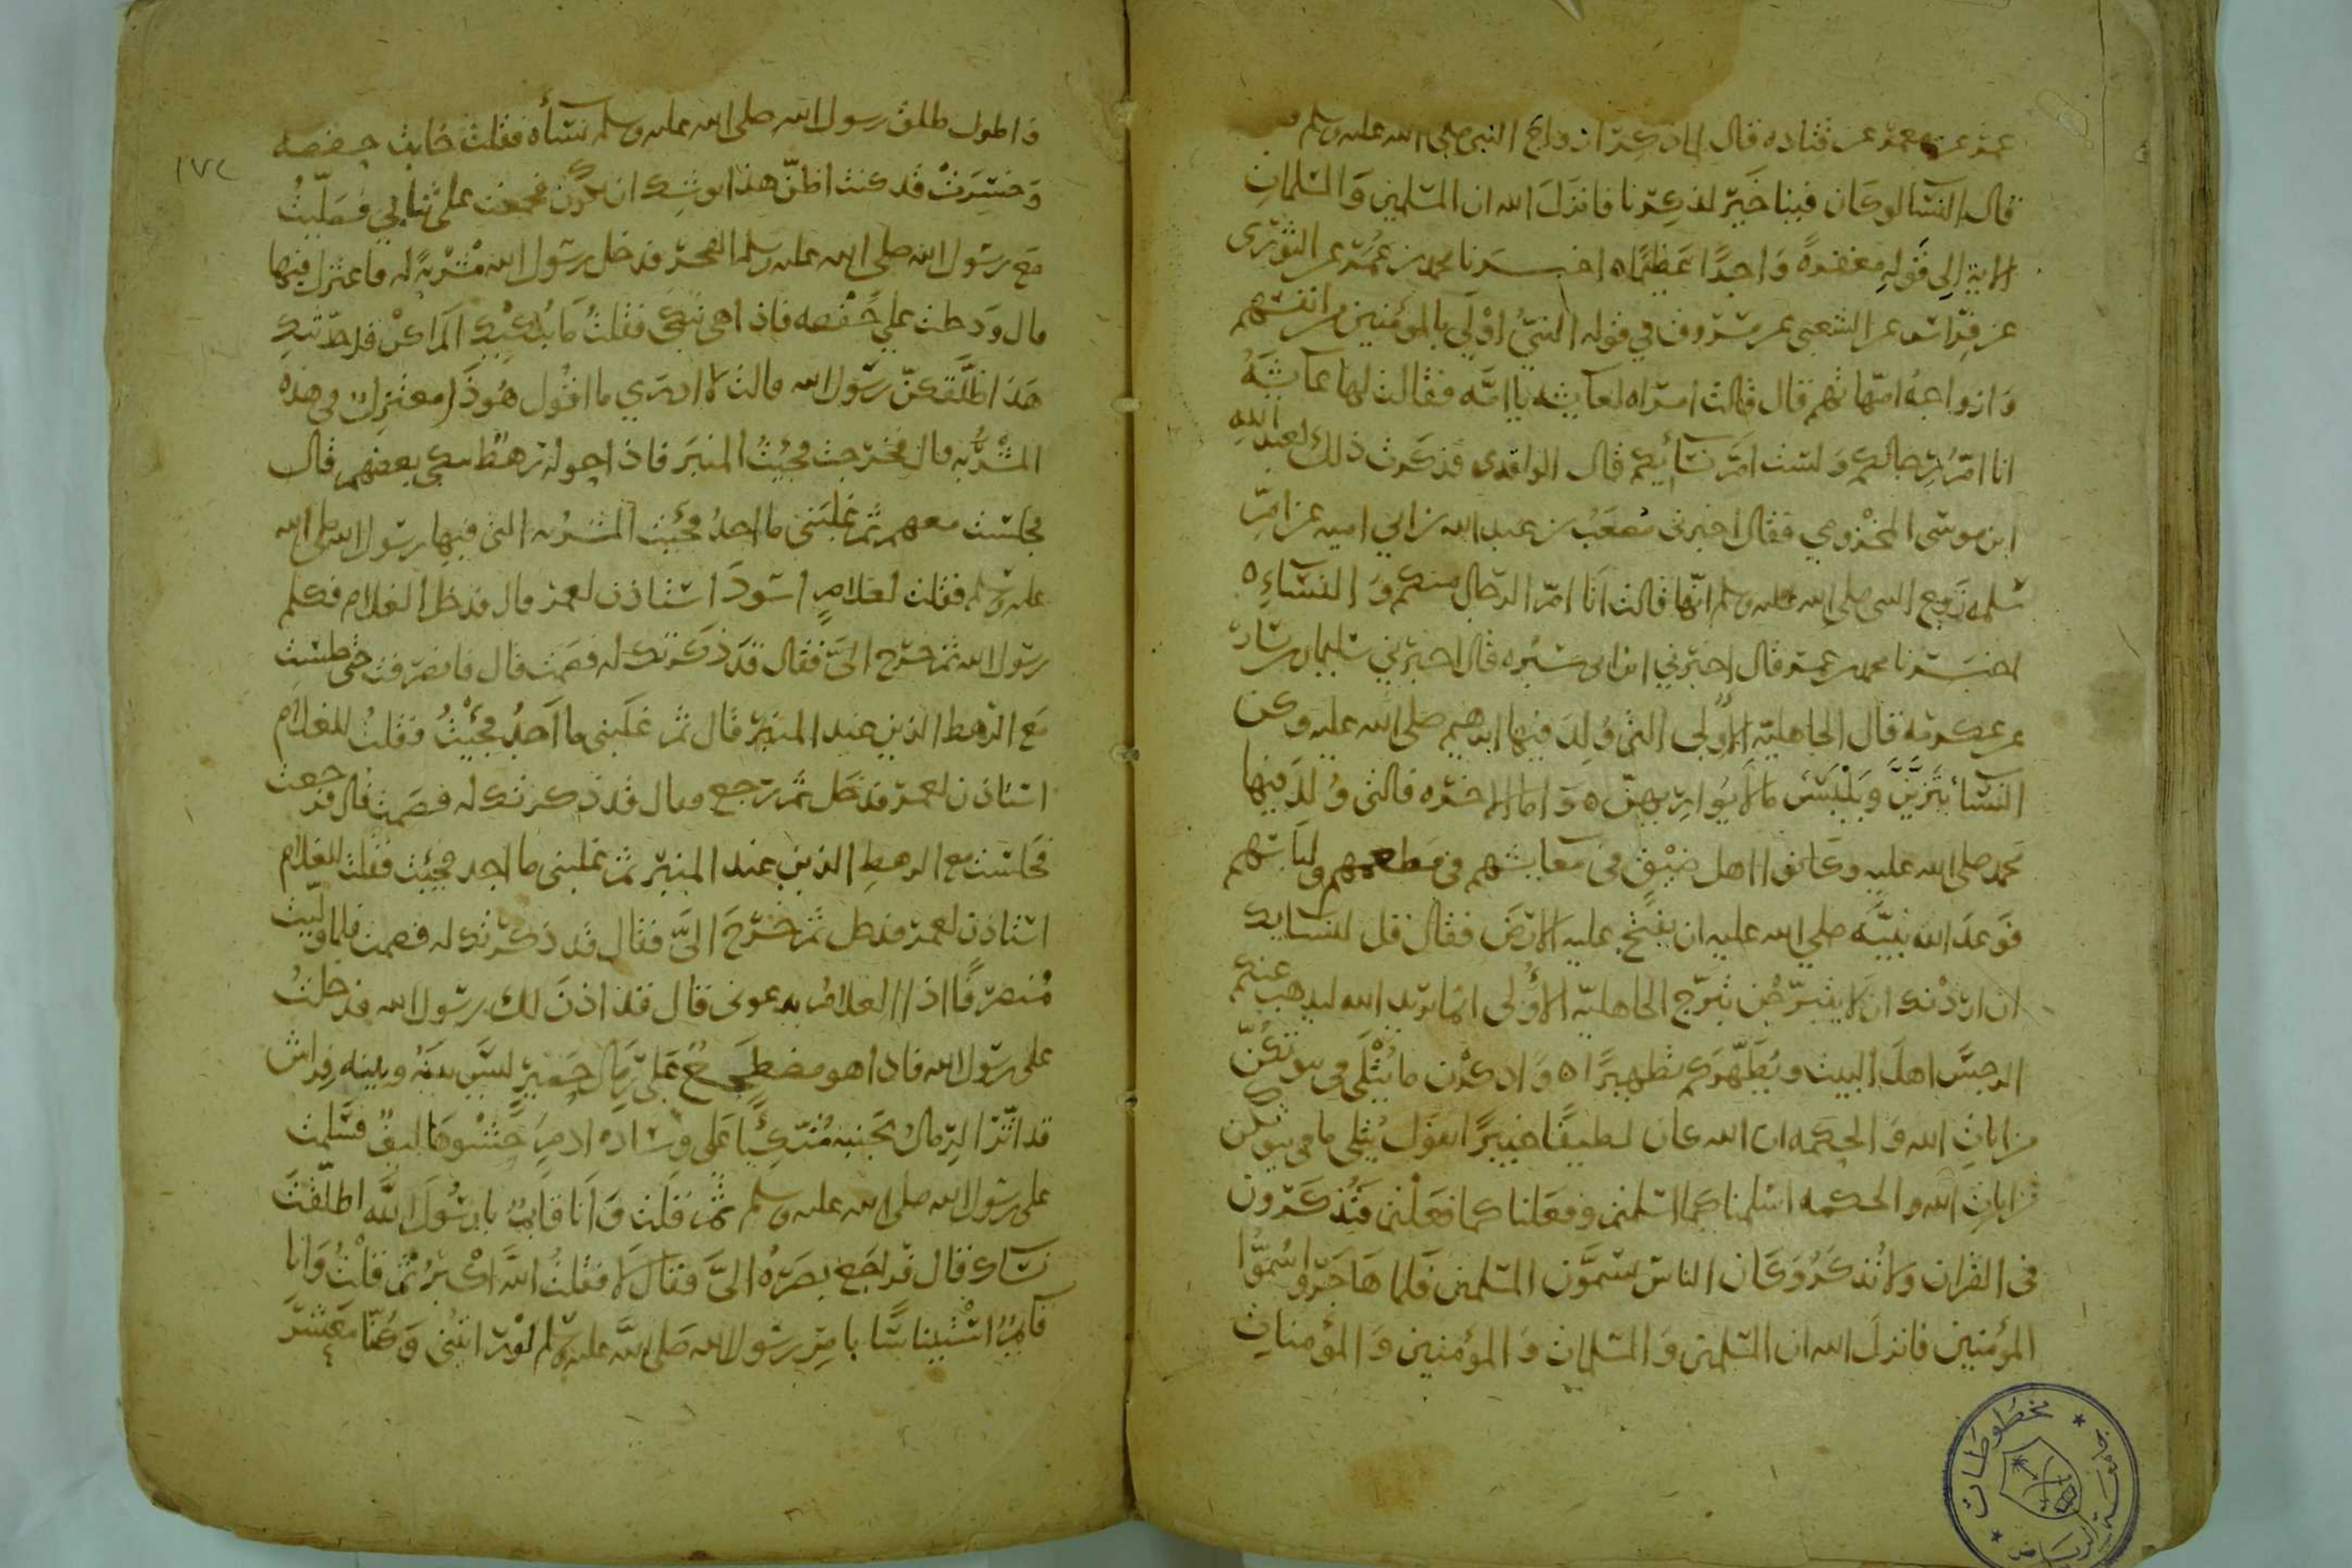 عمر عن معمر عن قتاده قال لما ذكر ازواج النبي صلى الله عليه وسلم
قال النسا لو كان فينا خير لذكرنا فانزل الله ان المسلمين والمسلمات
الاية الى قوله مغفرة واجرا عظيما ه اخبرنا محمد بن عمر عن الثورى
عن فراس عن الشعبى عن مسروق في قوله النبي اولى بالمؤمنين من انفسهم
وازواجه امهاتهم قال قالت امراه لعايشه يا امه فقالت لها عايشه
انا ام رجالكم ولست ام نسائكم قال الواقدى فذكرت ذلك لعبد الله
ابن موسى المخزومي فقال اخبرنى مصعب بن عبد الله بن ابي اميه عن ام
سلمه زوج النبى صلى الله عليه وسلم انها قالت انا ام الرجال منكم والنساء ه
اخبرنا محمد بن عمر قال اخبرني ابن ابى سبره قال اخبرني سليمان بن يسار
عن عكرمه قال الجاهلية الاولى التى ولد فيها ابرهيم صلى الله عليه وكن
النسا يتزين ويلبسن ما لا يواريهن ه واما الاخره فالتى ولد فيها
محمد صلى الله عليه وكانوا اهل ضيق فى معايشهم فى مطعمهم ولباسهم
فوعد الله نبيه صلي الله عليه ان يفتح عليه الارض فقال قل لنسايك
ان اردنك ان لا يتبرجن تبرج الجاهلية الاولى انما يريد الله ليذهب عنكم
الرجس اهل البيت ويطهركم تطهيرا ه واذكرن ما يتلى فى بيوتكن
من ايات الله والحكمه ان الله كان لطيفا خبيرا يقول يتلى ما فى بيوتكن
من ايات الله والحكمه اسلمنا كما اسلمتم وفعلنا كما فعلتم فتذكرون
فى القران ولا نذكر وكان الناس يسمون المسلمين فلما هاجروا سموا
المؤمنين فانزل الله ان المسلمين والمسلمات والمؤمنين والمؤمنات
واطول طلق رسول الله صلى الله عليه وسلم نساه فقلت خابت حفصه
وخسرت قد كنت اظن هذا يوشك ان يكون فجمعت على ثيابي فصليت
مع رسول الله صلى الله عليه وسلم الفجر فدخل رسول الله مشربة له فاعتزل فيها
قال ودخلت علي حفصه فاذا هى تبكى فقلت ما يبكيك الم اكن قد حذرتك
هذا اطلقكن رسول الله قالت لا ادري ما اقول هو ذا معتزل فى هذه
المشربه قال فخرجت فجيت المنبر فاذا حوله رهط يبكى بعضهم قال
فجلست معهم ثم غلبنى ما اجد فجئت المشربه التى فيها رسول الله صلى الله
عليه وسلم فقلت لغلام اسود استاذن لعمر قال فدخل الغلام فكلم
رسول الله ثم خرج الى فقال قد ذكرتك له فصمت قال فانصرفت حتى جلست
مع الرهط الذين عند المنبر قال ثم غلبنى ما اجد فجئت فقلت للغلام
استاذن لعمر فدخل ثم رجع فقال قد ذكرتك له فصمت قال فرجعت
فجلست مع الرهط الذين عند المنبر ثم غلبنى ما اجد فجئت فقلت للغلام
استاذن لعمر فدخل ثم خرج الى فقال قد ذكرتك له فصمت فلما وليت
منصرفا اذا الغلام يدعونى قال قد اذن لك رسول الله فدخلت
على رسول الله فاذا هو مضطجع على رمال حصير ليس بينه وبينه فراش
قد اثر الرمال بجنبه متكئا على وساده ادم حشوها ليف فسلمت
على رسول الله صلى الله عليه وسلم ثم قلت وانا قايم يا رسول الله اطلقت
نساءك قال فراجع بصره الى فقال لا فقلت الله اكبر ثم قلت وانا
قايم استئيناسا يا رسول الله صلى الله عليه وسلم لو رايتنى وكنا معشر
١٧٢
مخطوطات
جامعة الرياض